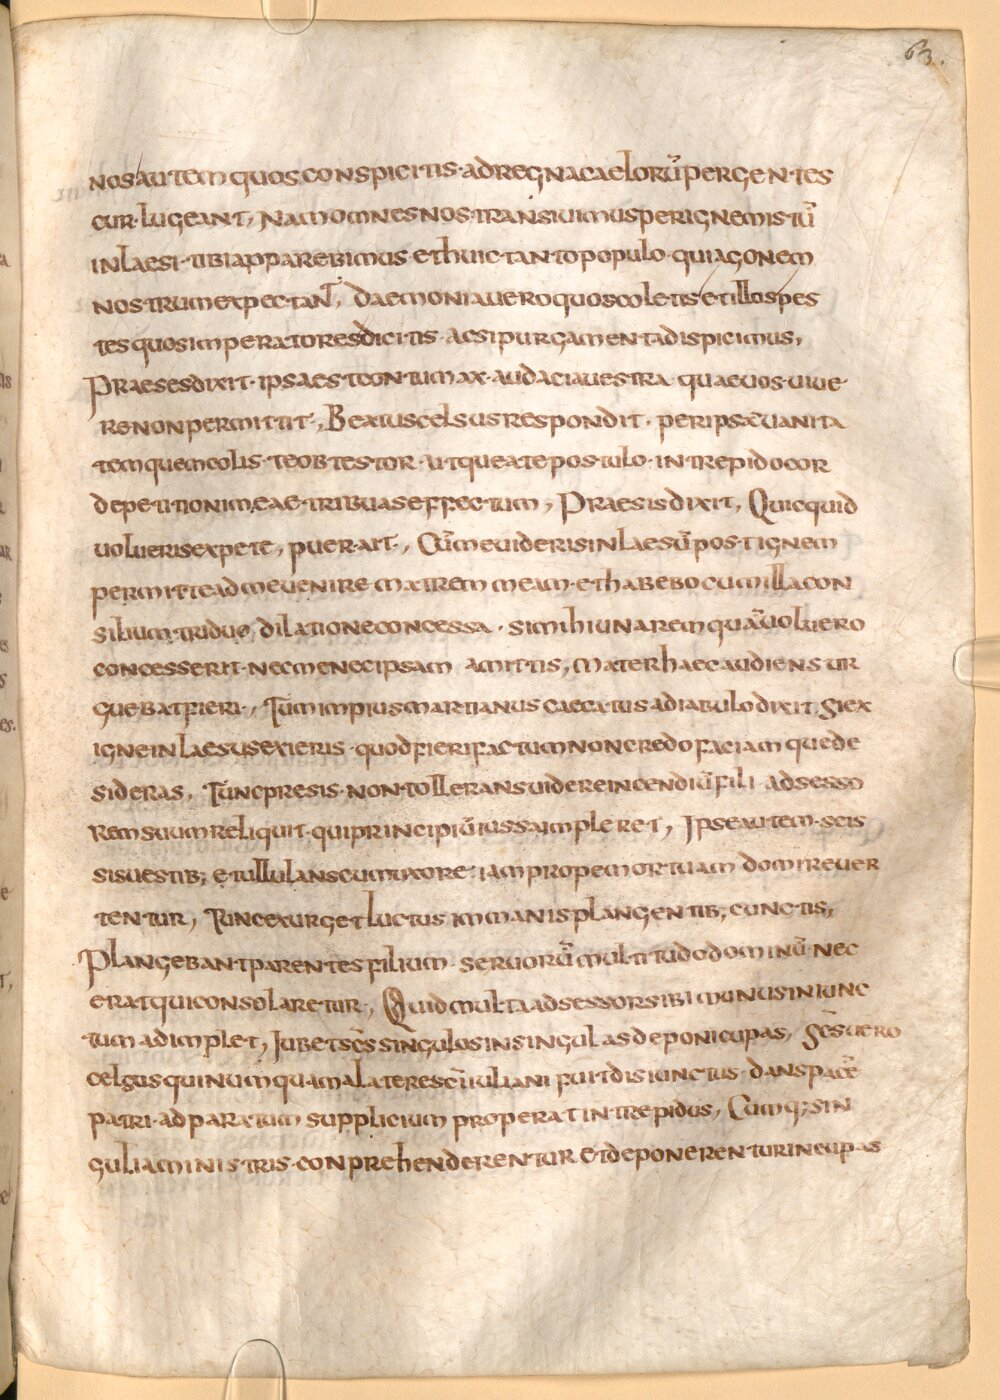 63.
nos autem quos conspicitis · ad regna caelorū pergentes
cur lugeant, Nam omnes nos transiuimus per ignem istū
inlaesi · tibi apparebimus · et huic tanto populo · qui agonem
nostrum expectant, daemonia uero quos coletis et illos pes
tes quos imperatores dicitis · ac si purgamenta dispicimus,
Praeses dixit · ipsa est contumax · audacia uestra · quae uos uiue
re non permittit, Beatus celsus respondit · per ipsā uanita
tem quem colis · te obtestor · utque a te postulo · intrepido cor
de petitioni meae tribuas effectum, Praesis dixit, Quicquid
uolueris expete, puer · ait, Cūm euideris inlaesū post ignem
permitte ad me uenire matrem meam · et habebo cum illa con
silium · triduo dilatione concessa · si mihi unarem quāuoluero
concesserit · nec me nec ipsam amittis, mater haec audiens ur
guebat fieri, Tum impius martianus caecatus a diabulo dixit · Si ex
igne inlaesus exieris · quod fieri factum non credo faciam que de
sideras, Tunc presis · non tollerans uidere incendiū fili · adsesso
rem suum reliquit · qui principiū iussa impleret, Ipse autem · scis
sis uestib; et ullulans cum uxore · iam prope mortuam domi reuer
tentur, Tunc exurget luctus immanis plangentib; cunctis,
Plangebant parentes filium · seruorū multitudo dominū nec
erat qui consolaretur, Quid multa adsessor sibi munus iniunc
tum adimplet, Iubet scēs singulos in singulas deponi cupas, Scs̄ uero
celsus qui numquam a latere scī iuliani fuit disiunctus · dans pacē
patri · ad paratum supplicium properat intrepidus, Cumq; sin
guli a ministris · conprehenderentur et deponerentur in cupas